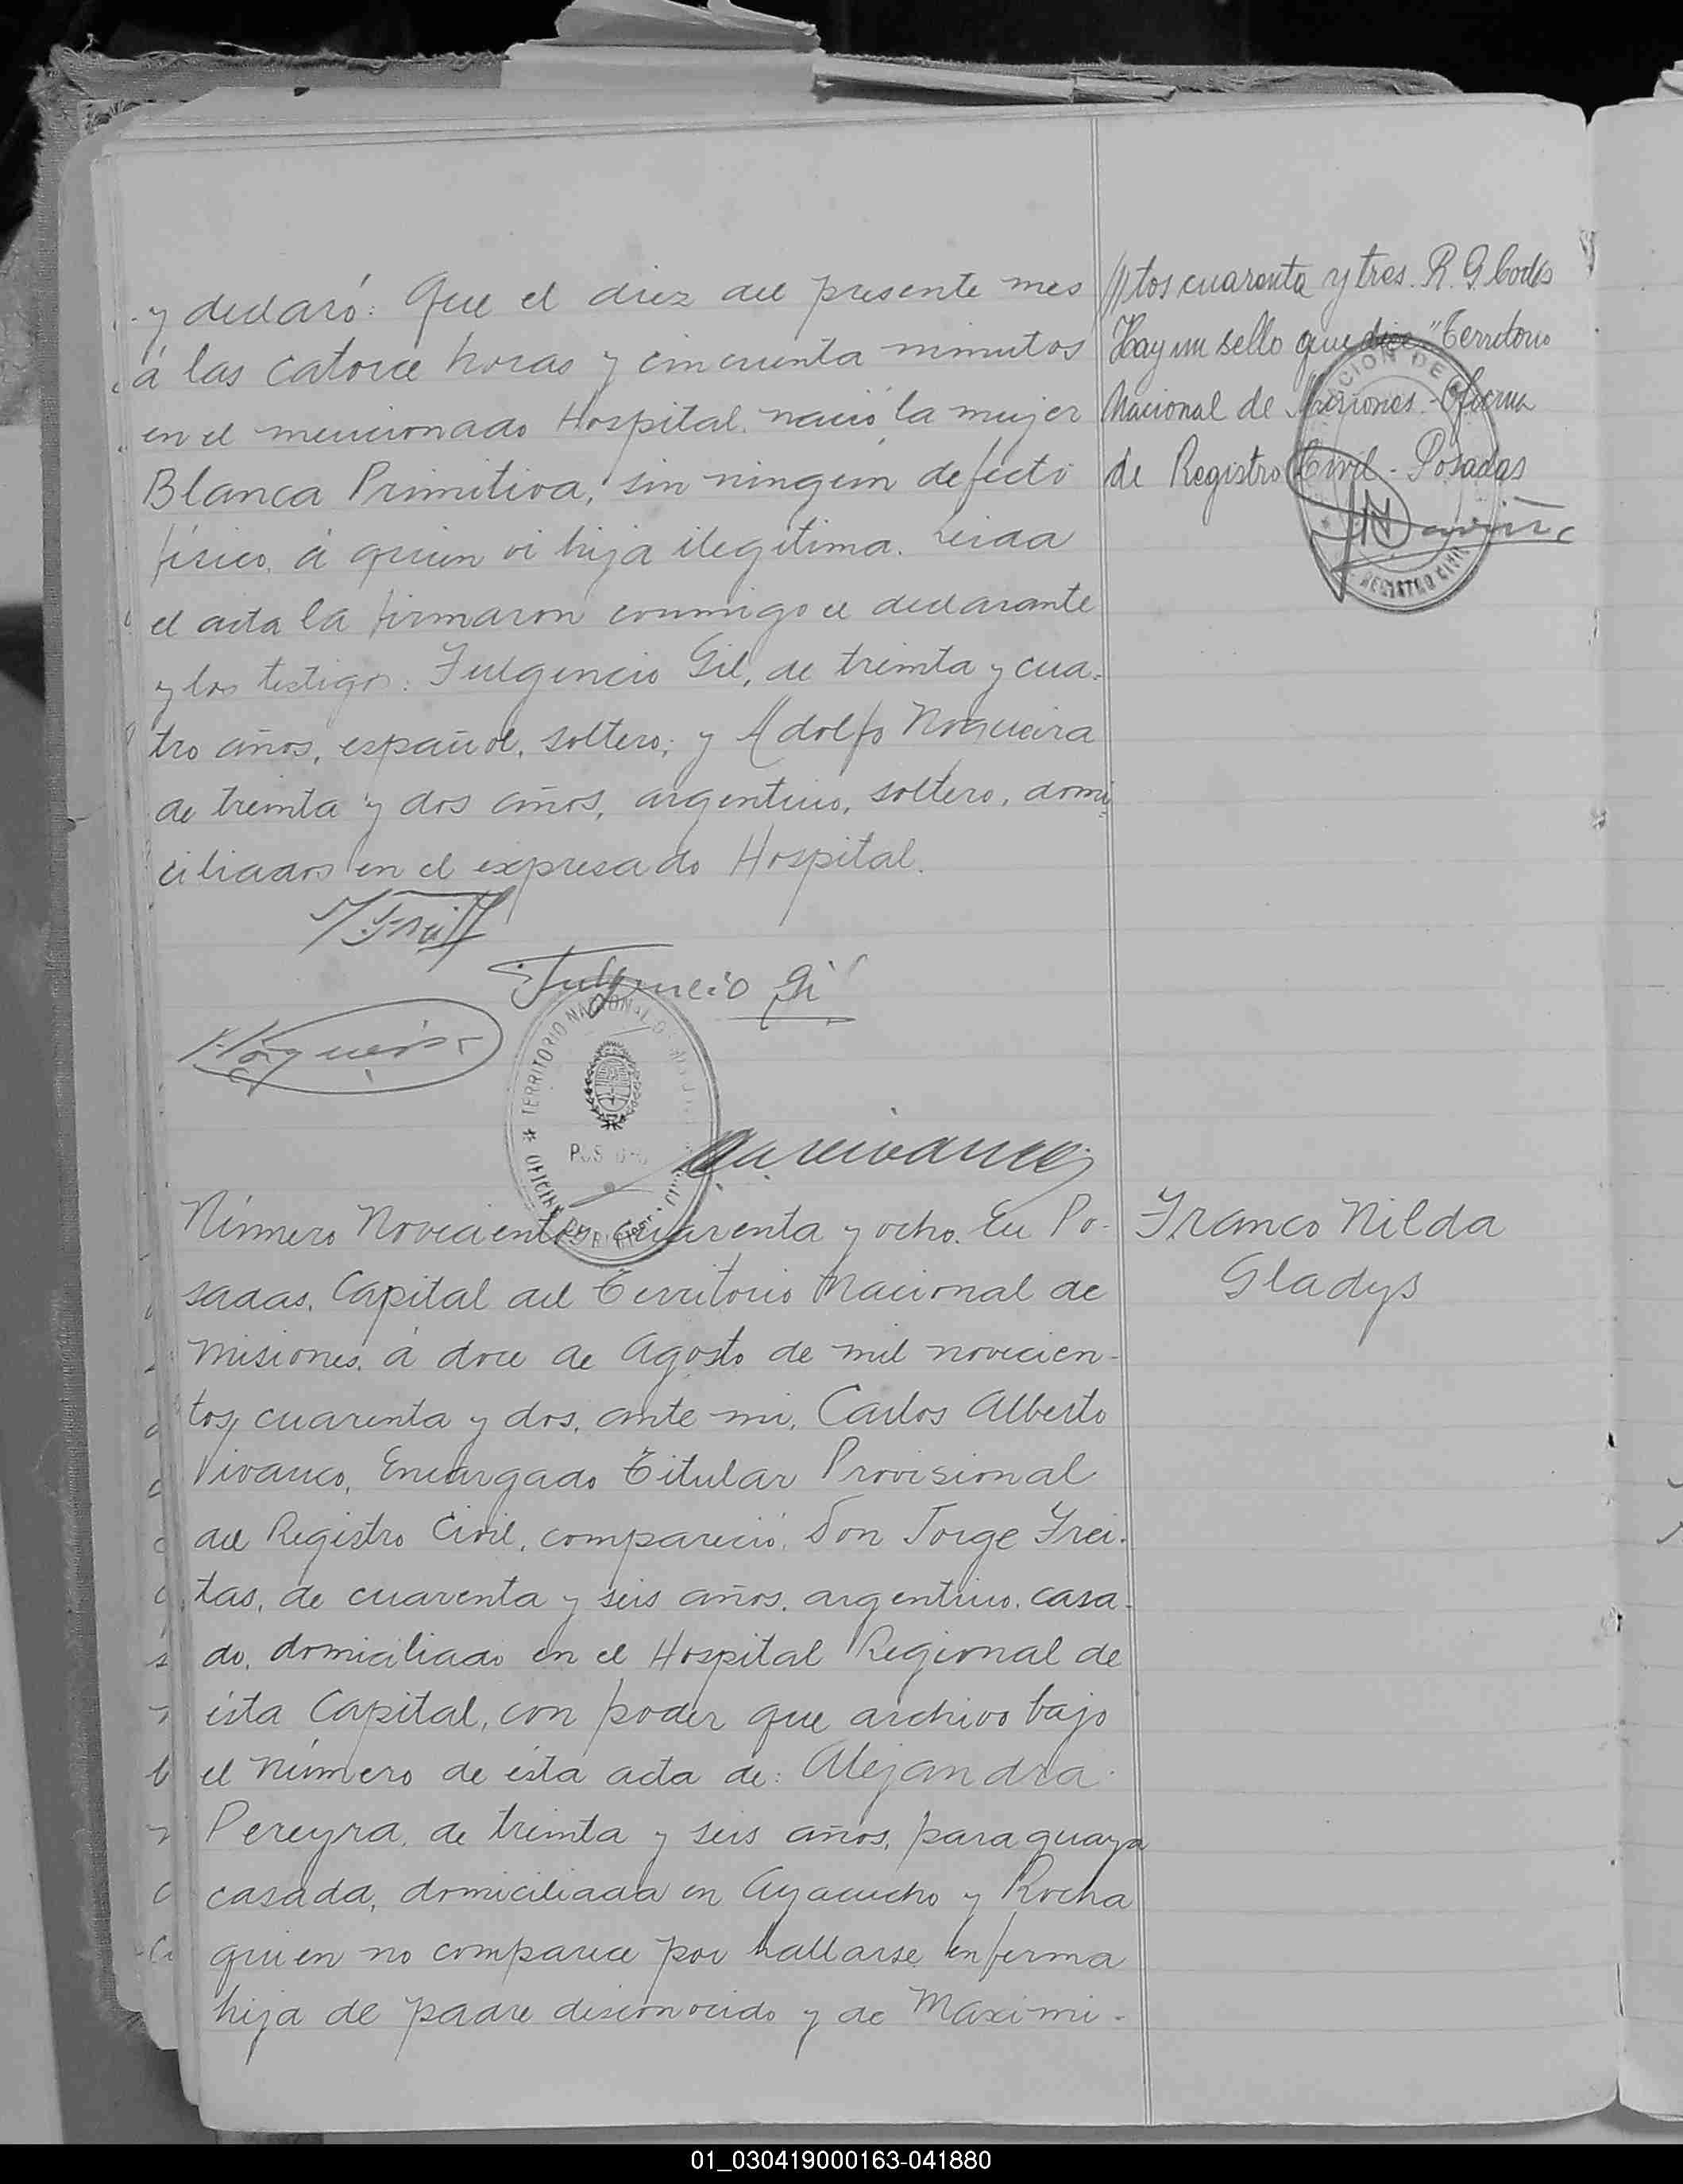 y declaró: Que el diez del presente mes
á las catorce horas y cincuenta minutos
en el mencionado Hospital, nació la mujer
Blanca Primitiva, sin ningún defecto
físico, á quien vi hija ilegitima. Leida
el acta la firmaron conmigo el declarante
y los testigos: Fulgencio Gil, de treinta y cua-
tro años, español, soltero; y Adolfo Nogueira
de treinta y dos años, argentino, soltero, domi-
ciliados en el expresado Hospital.
Fulgencio Gil
Nogueira
TERRITORIO NACIONAL DE MISIONES
POSADAS
///tos cuarenta y tres. R. G.
Hay un sello que dice "Territorio
Nacional de Misiones - Oficina
de Registro Civil - Posadas
REGISTRO CIVIL
Número Novecientos cuarenta y ocho. En Po-
sadas, Capital del Territorio Nacional de
Misiones, á doce de Agosto de mil novecien-
tos cuarenta y dos, ante mi, Carlos Alberto
Vivanco, Encargado Titular Provisional
del Registro Civil, compareció, Don Jorge Frei-
tas, de cuarenta y seis años, argentino, casa-
do, domiciliado en el Hospital Regional de
ésta Capital, con poder que archivo bajo
el número de ésta acta de: Alejandra
Pereyra, de treinta y seis años, paraguaya
casada, domiciliada en Ayacucho y Rocha
quien no comparece por hallarse enferma
hija de padre desconocido y de Maximi-
Franco Nilda
Gladys
01_030419000163-041880